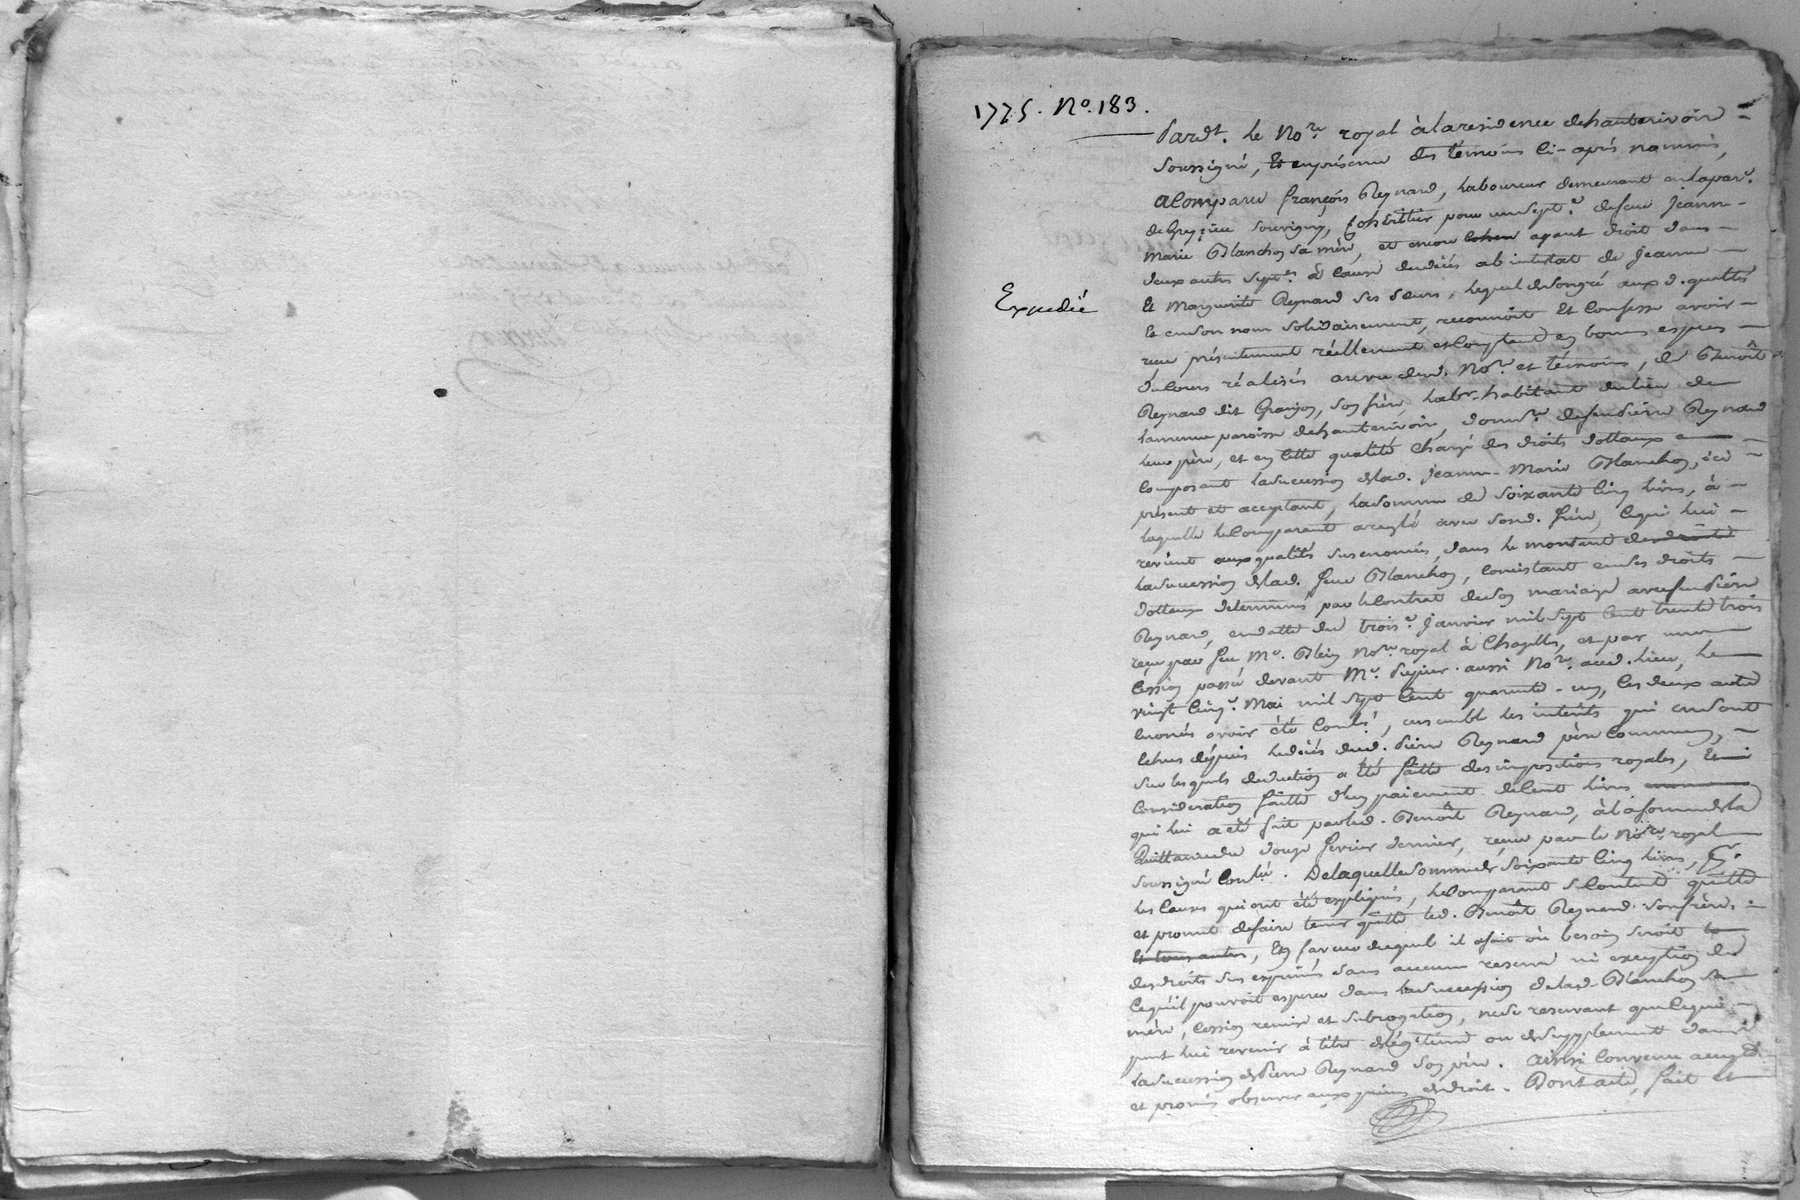 1775. No. 183.
Pardt. le Nore. royal à la residence de hauterivoire
soussigné, Et en présence des témoins ci-après nommés,
a Comparu françois Reynard, laboureur demeurant en la parse.
de Grezieu Souvigny, Cohéritier pour un septe. de feue Jeanne-
Marie Blanchon sa mère, et encore ayant droit dans
deux autres septes. à Cause du decès ab intestat de Jeanne
Et Marguerite Reynard ses sœurs, lequel de son gré aux d. qualités
Et en son nom solidairement, reconnoit Et Confesse avoir
Expediée
recu présentement réellement et Comptant en bonnes espèces
de Cours réalisés au vu dud. Nore. et témoins, de Benoît
Reynard dit Granjon, son frère, labr. habitant du lieu de
paroisse de hauterivoire, donate. de feu Pierre Reynard
leur père, et en Cette qualité Chargé des droits dottaux
Composant la succession de lad. Jeanne-Marie Blanchon, ici
présent et acceptant, la somme de soixante Cinq livres, à
laquelle le Comparant a reglé avec son d. frère, Ce qui lui
revient aux qualités susenoncées, dans le montant des droits
la succession de lad. feue Blanchon, Consistant en ses droits
dottaux determinés par le Contrat de son mariage avec feu Pierre
Reynard, en datte du troise. Janvier mil sept Cent trente trois
reçu par feu Me. Blein Nore. royal à Chazelles, et par une
Cession passée devant Me. aussi Nore. aud. lieu, le
vingt Cinqe. Mai mil sept Cent quarante-un, les deux actes
enoncés avoir été Contlé, ensemble les interêts qui en sont
echus depuis le decès dud. Pierre Reynard père Commun,
sur lesquels deduction a été faitte des impositions royales, Et
Consideration faitte d'un paiement de Cent livres
qui lui a été fait par led. Benoît Reynard, à la forme de la
Quittance du douze fevrier dernier, recue par le Nore. royal
soussigné Conlée. De laquelle somme de soixante Cinq livres,
les Causes qui ont été expliquées, le Comparant se Contente quitte
et promet de faire tenir quitte led. Benoît Reynard son frère.
Et tous autres, En faveur duquel il a fait où besoin seroit
des droits sus exprimés sans aucune reserve ni exception de
Ce qu'il pouvoit esperer dans la succession de lad. Blanchon sa
mère, Cession remise et subrogation, ne se reservant que Ce qui
peut lui revenir à titre de légitime ou de supplement dans
la succession de Pierre Reynard son père. Ainsi Convenu accepté
et promis observer aux peines de droit. Dont acte, fait et